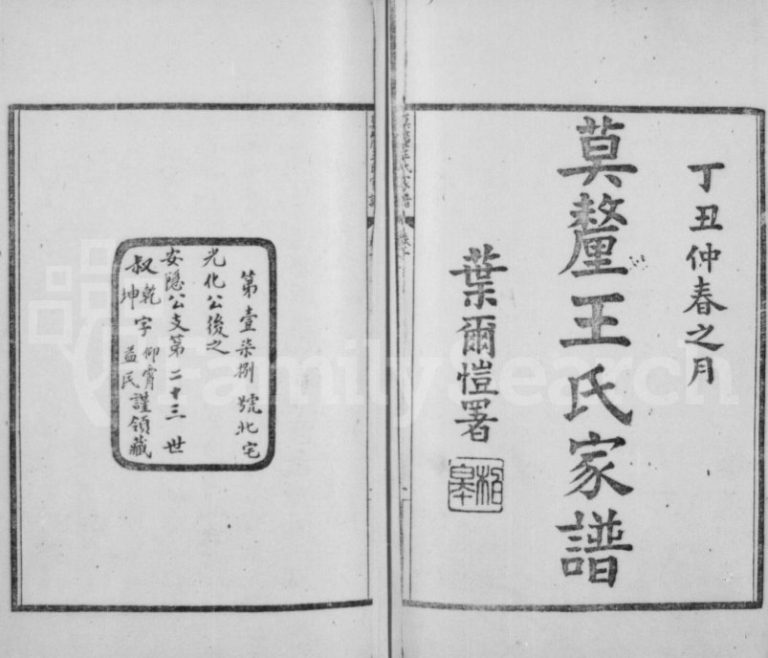 丁丑仲春之月
莫釐王氏家譜
葉爾愷署
柏皋
莫釐王氏家譜
第壹柒捌號北宅
光化公後之
安隱公支第二十三世
叔乾坤字仰霄益民謹領藏
FamilySearch